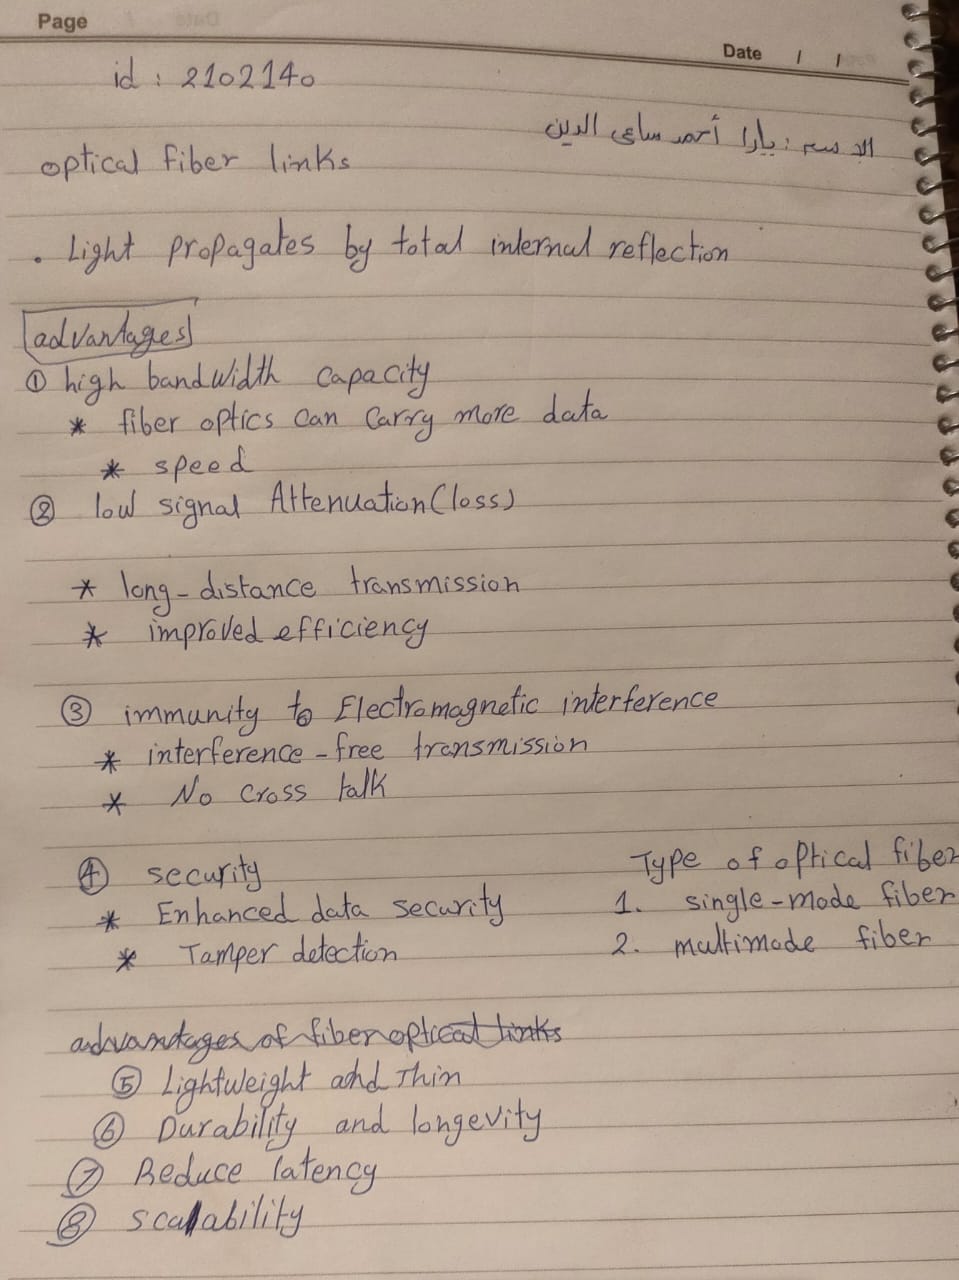 Page
Date / /
id : 2102140
الاسم : يارا أحمد سامي الدين
optical fiber links
. Light propagates by total internal reflection
advantages
① high bandwidth capacity
* fiber optics can carry more data
* speed
② low signal Attenuation (loss)
* long-distance transmission
* improved efficiency
③ immunity to Electromagnetic interference
* interference-free transmission
* No cross talk
④ security
* Enhanced data security
* Tamper detection
Type of optical fiber
1. single-mode fiber
2. multimode fiber
advantages of fiber optical links
⑤ Lightweight and Thin
⑥ Durability and longevity
⑦ Reduce latency
⑧ scalability